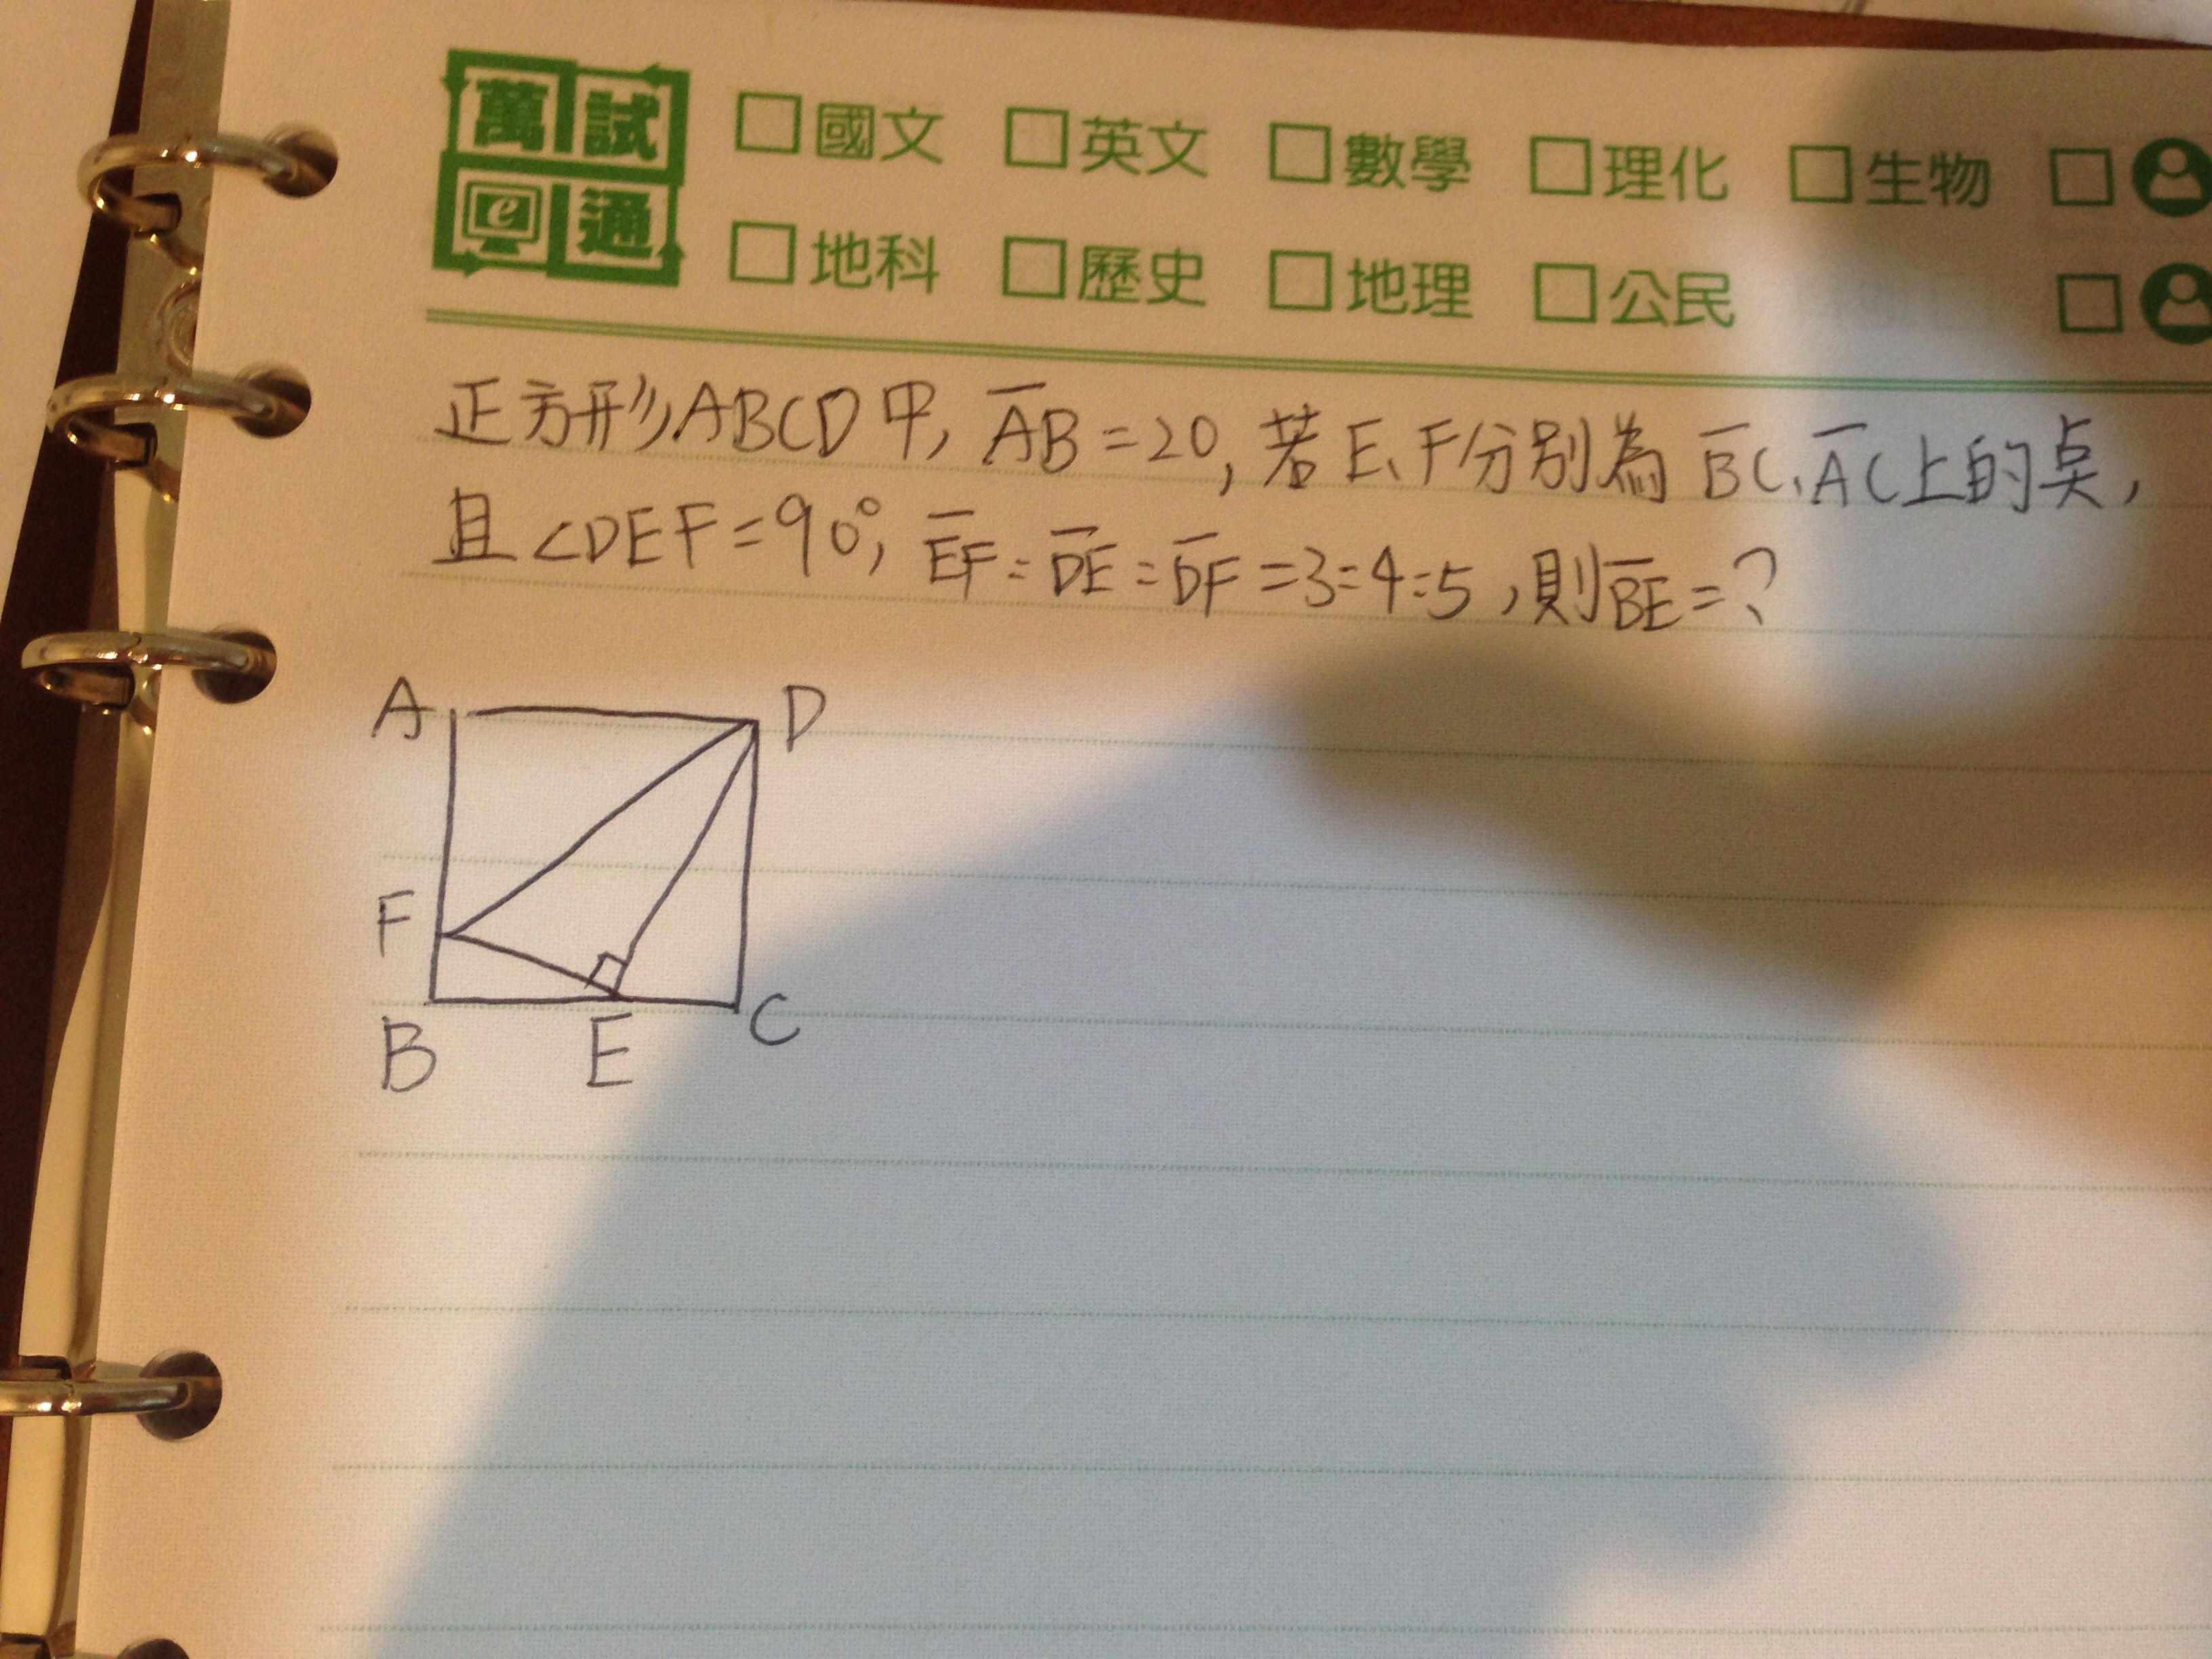 萬試e通
□國文 □英文 □數學 □理化 □生物 □
□地科 □歷史 □地理 □公民 □
正方形ABCD中, AB=20, 若E、F分別為BC、AC上的點,
且∠DEF=90°, EF:DE:DF=3:4:5,則BE=?
A D
F
B E C